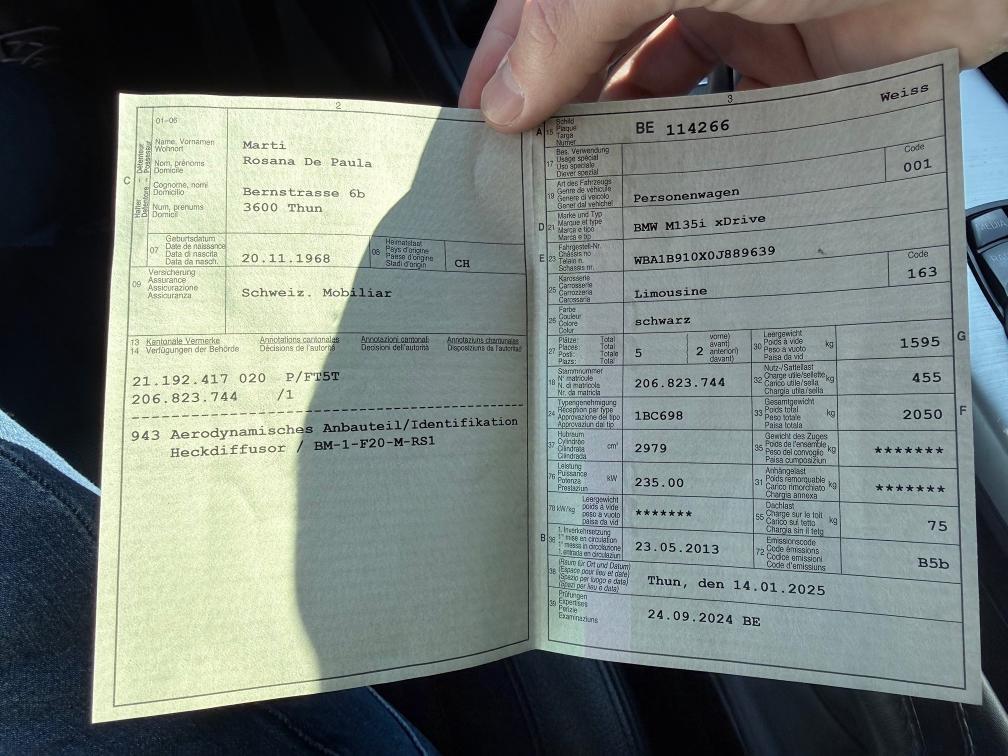 2
01-06
C
Halter - Détenteur
Detentore - Possessur
Name, Vornamen
Wohnort
Nom, prénoms
Domicile
Cognome, nomi
Domicilio
Num, prenums
Domicil
Marti
Rosana De Paula
Bernstrasse 6b
3600 Thun
07
Geburtsdatum
Date de naissance
Data di nascita
Data da nasch.
20.11.1968
08
Heimatstaat
Pays d'origine
Paese d'origine
Stadi d'origin
CH
09
Versicherung
Assurance
Assicurazione
Assicuranza
Schweiz. Mobiliar
13 Kantonale Vermerke Annotations cantonales Annotazioni cantonali Annotaziuns chantunalas
14 Verfügungen der Behörde Décisions de l'autorité Decisioni dell'autorità Disposiziuns da l'autoritad
21.192.417 020 P/FT5T
206.823.744 /1
943 Aerodynamisches Anbauteil/Identifikation
Heckdiffusor / BM-1-F20-M-RS1
3
Weiss
A 15
Schild
Plaque
Targa
Numer
BE 114266
17
Bes. Verwendung
Usage spécial
Uso speciale
Diever spezial
Code
001
19
Art des Fahrzeugs
Genre de véhicule
Genere di veicolo
Gener dal vehichel
Personenwagen
D 21
Marke und Typ
Marque et type
Marca e tipo
Marca e tip
BMW M135i xDrive
E 23
Fahrgestell-Nr.
Châssis no
Telaio n.
Schassis nr.
WBA1B910X0J889639
25
Karosserie
Carrosserie
Carrozzeria
Carossaria
Limousine
Code
163
26
Farbe
Couleur
Colore
Colur
schwarz
27
Plätze: Total
Places: Total
Posti: Totale
Plazs: Total
5
2
vorne)
avant)
anteriori)
davant)
G
30
Leergewicht
Poids à vide
Peso a vuoto
Paisa da vid
kg
1595
18
Stammnummer
N° matricule
N. di matricola
Nr. da matricla
206.823.744
32
Nutz-/Sattellast
Charge utile/sellette
Carico utile/sella
Chargia utila/sella
kg
455
24
Typengenehmigung
Réception par type
Approvazione del tipo
Approvaziun dal tip
1BC698
33
Gesamtgewicht
Poids total
Peso totale
Paisa totala
kg
2050
F
37
Hubraum
Cylindrée
Cilindrata
Cilindrada
cm³
2979
35
Gewicht des Zuges
Poids de l'ensemble
Peso del convoglio
Paisa cumposiziun
kg
*******
76
Leistung
Puissance
Potenza
Prestaziun
kW
235.00
31
Anhängelast
Poids remorquable
Carico rimorchiato
Chargia annexa
kg
*******
78 kW/kg
Leergewicht
poids à vide
peso a vuoto
paisa da vid
*******
55
Dachlast
Charge sur le toit
Carico sul tetto
Chargia sin il tetg
kg
75
B 36
1. Inverkehrsetzung
1re mise en circulation
1a messa in circolazione
1. entrada en circulaziun
23.05.2013
72
Emissionscode
Code émissions
Codice emissioni
Code d'emissiuns
B5b
38
(Raum für Ort und Datum)
(Espace pour lieu et date)
(Spazio per luogo e data)
(Spazi per lieu e data)
Thun, den 14.01.2025
39
Prüfungen
Expertises
Perizie
Examinaziuns
24.09.2024 BE
MEDIA